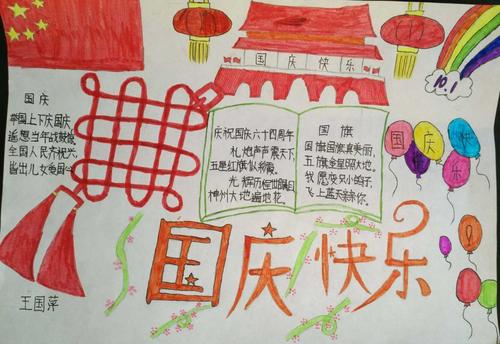 国庆快乐
10.1
国庆
举国上下庆国庆
遥想当年战鼓擂
全国人民齐祝兴
皆出儿女爱国心
庆祝国庆六十四周年
礼炮声声震天下,
五星红旗似彩霞。
光辉历程世瞩目
神州大地遍地花。
国旗
国旗国旗真美丽,
五旗金星照大地。
我愿变只小鸽子,
飞上蓝天亲亲你。
国庆快乐!
国庆快乐
王国萍